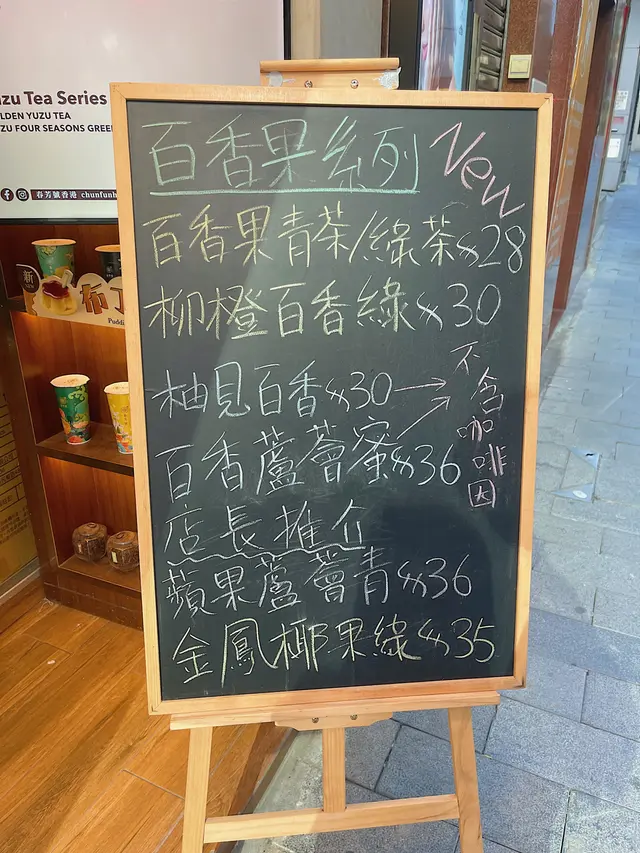 Yuzu Tea Series
LDEN YUZU TEA
ZU FOUR SEASONS GREE
春芳號香港 chunfunh
新
布丁
Puddi
百香果系列
New
百香果青茶/綠茶 $28
柳橙百香綠 $30
柚見百香 $30 →
百香蘆薈蜜 $36 →
不含咖啡因
店長推介
蘋果蘆薈青 $36
金鳳椰果綠 $35